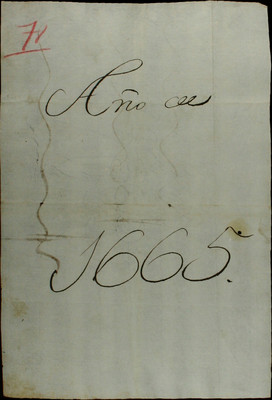 Año de
1665.